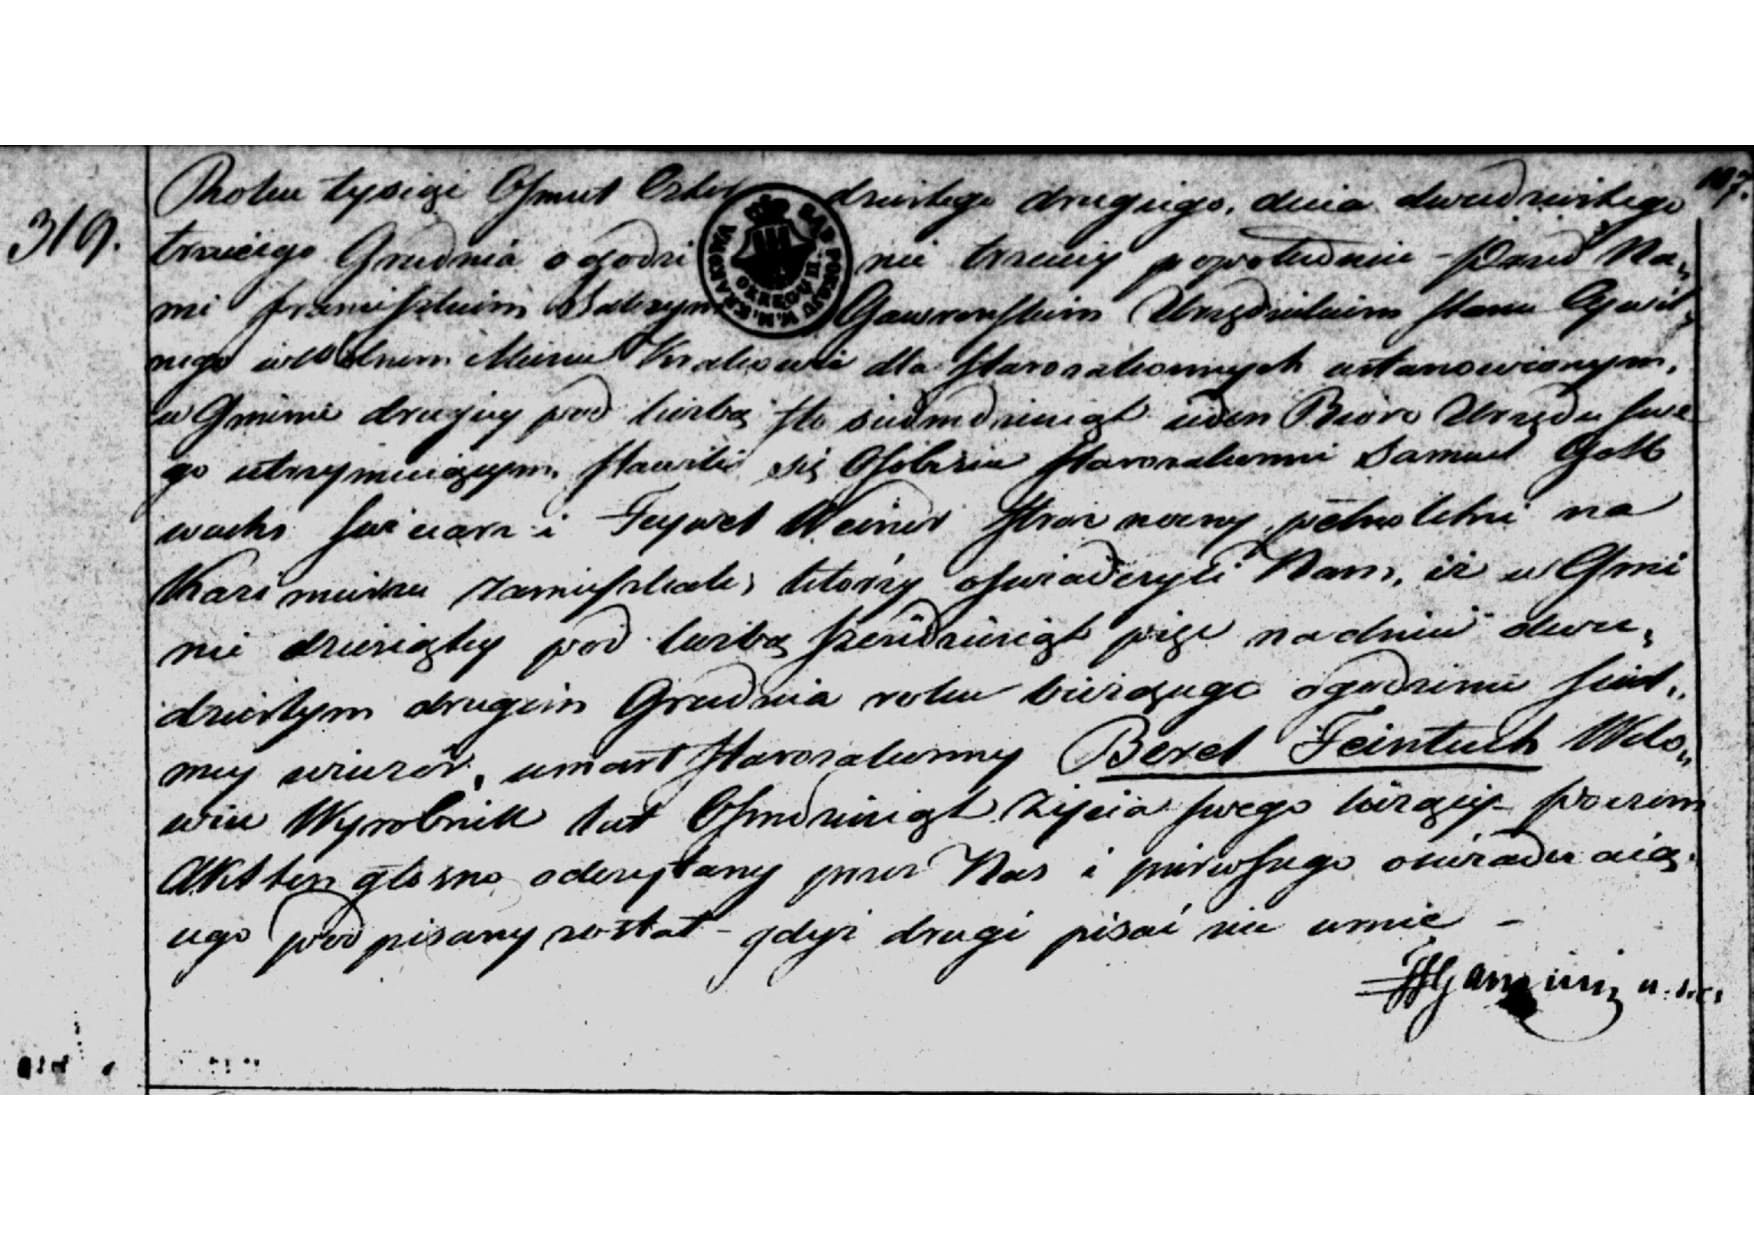 107.
319.
Roku tysiąc Osmset Czter dziestego drugiego, dnia dwudziestego
trzeciego Grudnia o godzi nie trzeciey popołudniu – Przed Na„
mi Franciszkiem Salezym Gawrońskim Urzędnikiem Stanu Cywil„
nego w Wolnem Mieście Krakowie dla Starozakonnych ustanowionym,
w Gminie drugiey pod liczbą sto siedmdziesiąt ieden Bióro Urzędu swe
go utrzymuiącym, stawili się Osobiście Starozakonni Samuel Gott
wachs i Feywel Weiner Stroz nocny, pełnoletni na
Kazimierzu zamieszkali, którzy oświadczyli Nam, iż w Gmi
nie dziesiątey pod liczbą sześćdziesiąt pięć na dniu dwu„
dziestym drugim Grudnia roku bieżącego o godzinie siód„
mey wieczór, umarł Starozakonny Berel Feintuch Wdo„
wiec Wyrobnik lat Osmdziesiąt życia swego liczący – poczem
Akt ten głosno odczytany przez Nas i pierwszego oświadczaią„
cego podpisany został – gdyż drugi pisać nie umie –